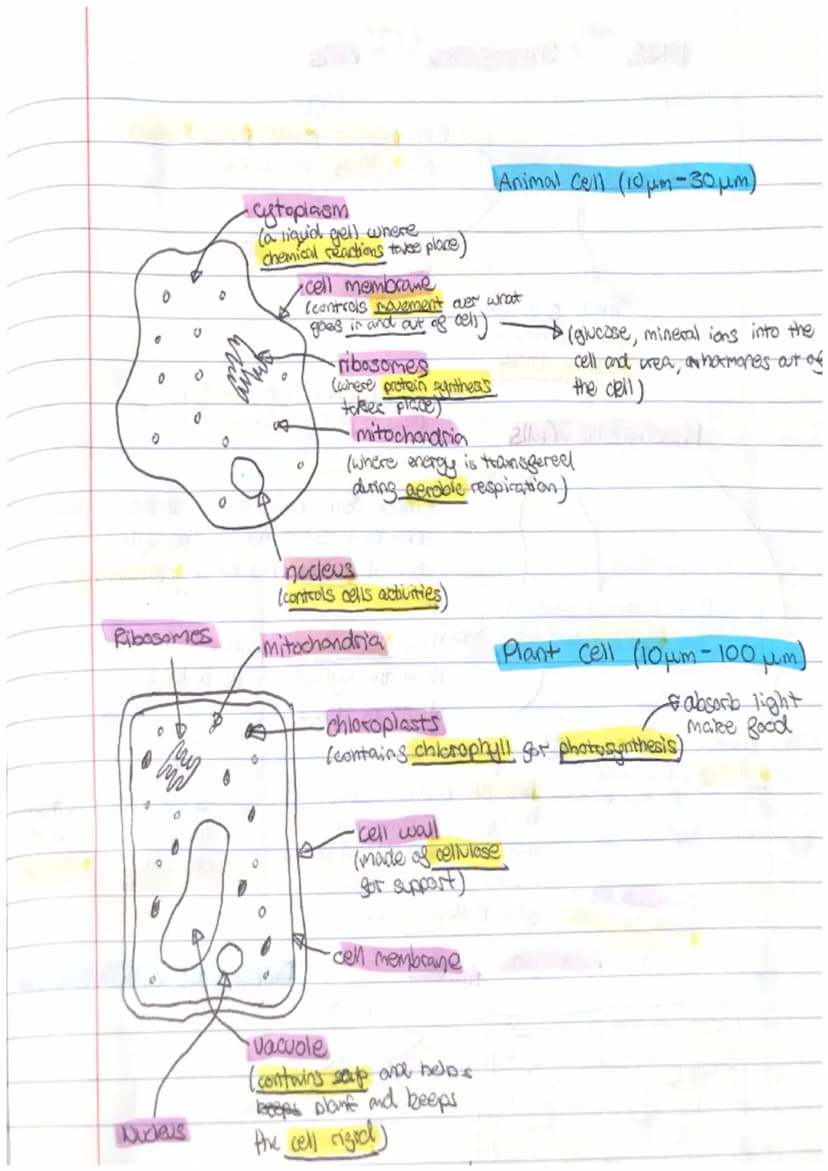 Animal Cell (10μm-30μm)
cytoplasm
(a liquid gel) where
chemical reactions take place)
cell membrane
(controls movement over what
goes in and out of cell)
(glucose, mineral ions into the
cell and urea, hormones out of
the cell)
ribosomes
(where protein synthesis
takes place)
mitochondria
(where energy is transfered
during aerobic respiration)
nucleus
(controls cells activities)
Plant Cell (10μm-100μm)
Ribosomes
mitochondria
absorb light
make food
chloroplasts
(contains chlorophyll for photosynthesis)
cell wall
(made of cellulose
for support)
cell membrane
vacuole
(contains sap and helps
keeps plant and keeps
the cell rigid)
Nucleus